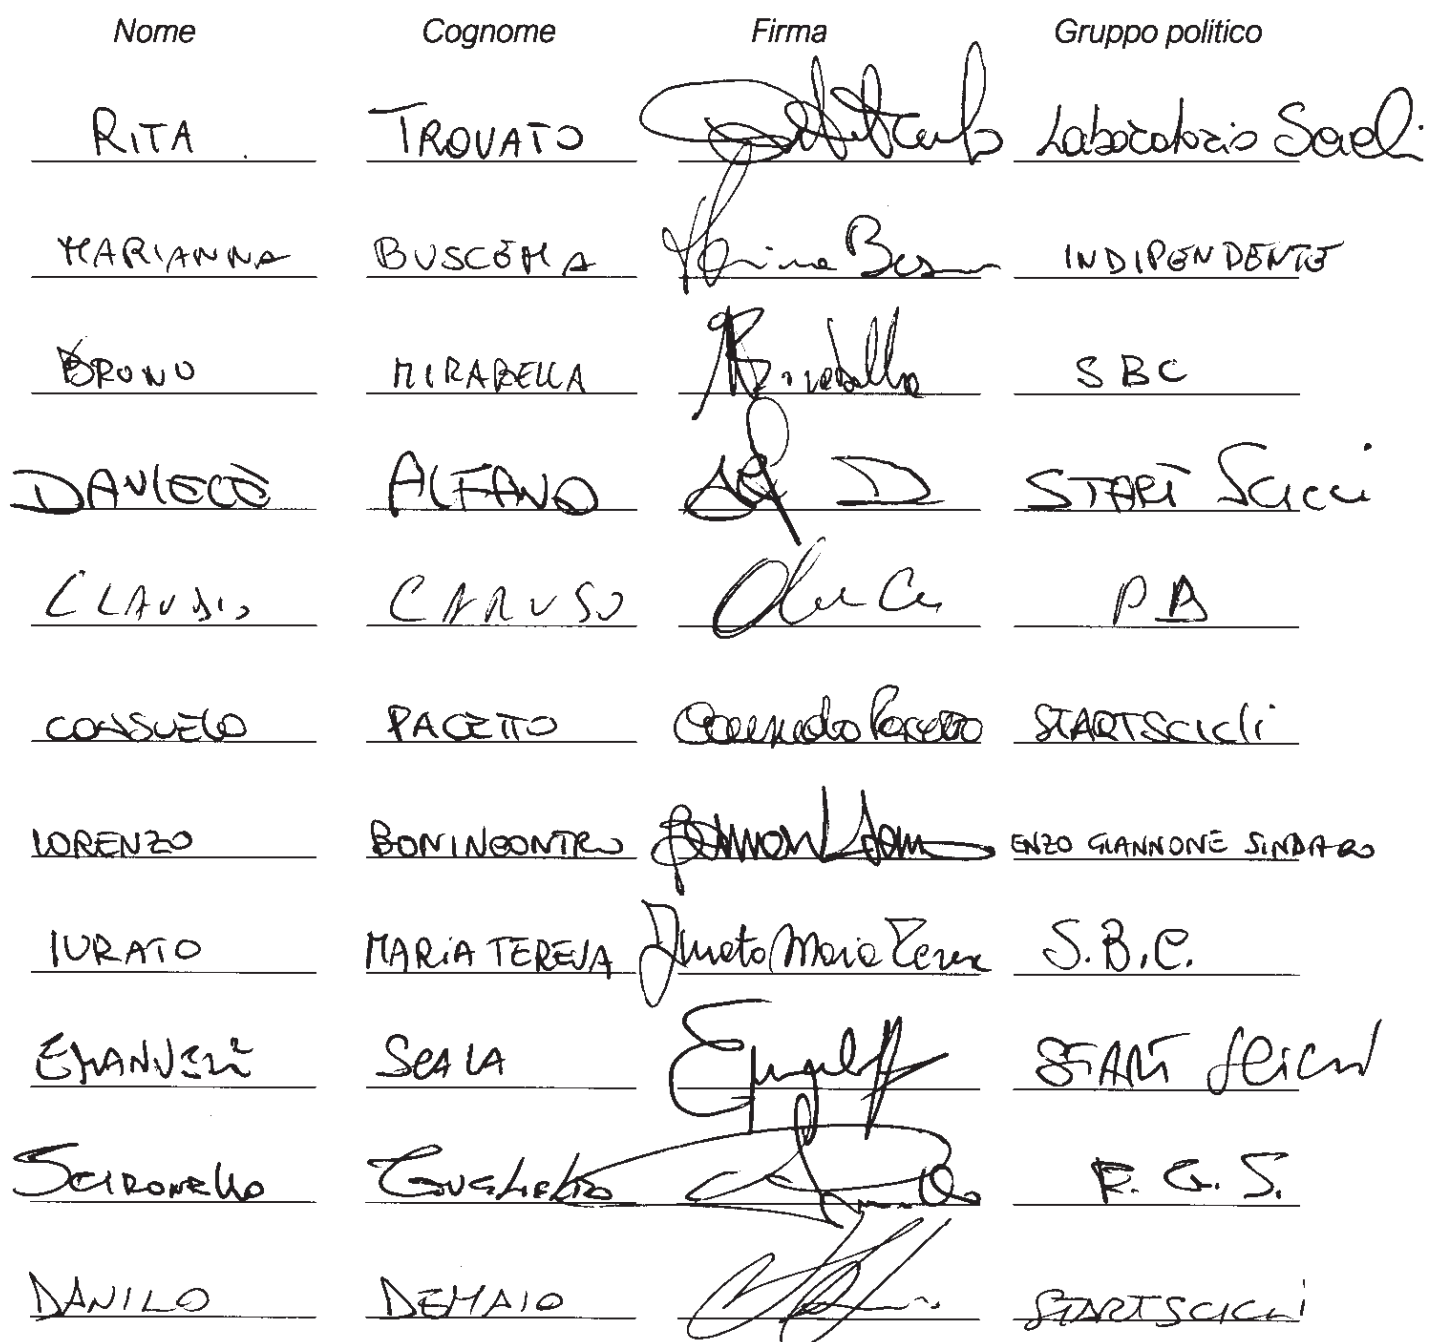 Nome Cognome Firma Gruppo politico
RITA TROVATO Laboratorio Scicli
MARIANNA BUSCEMA INDIPENDENTE
BRUNO MIRABELLA Mirabella SBC
DANIELE ALFANO START Scicli
CLAUDIO CARUSO PD
CONSUELO PACETTO Consuelo Pacetto STARTSCICLI
LORENZO BONINCONTRO ENZO GIANNONE SINDACO
IURATO MARIA TERESA Iurato Maria Teresa S.B.C.
EMANUELE SCALA START SCICLI
SCIRONELLO Guglielmo E.G.S.
DANILO DEMAIO STARTSCICLI